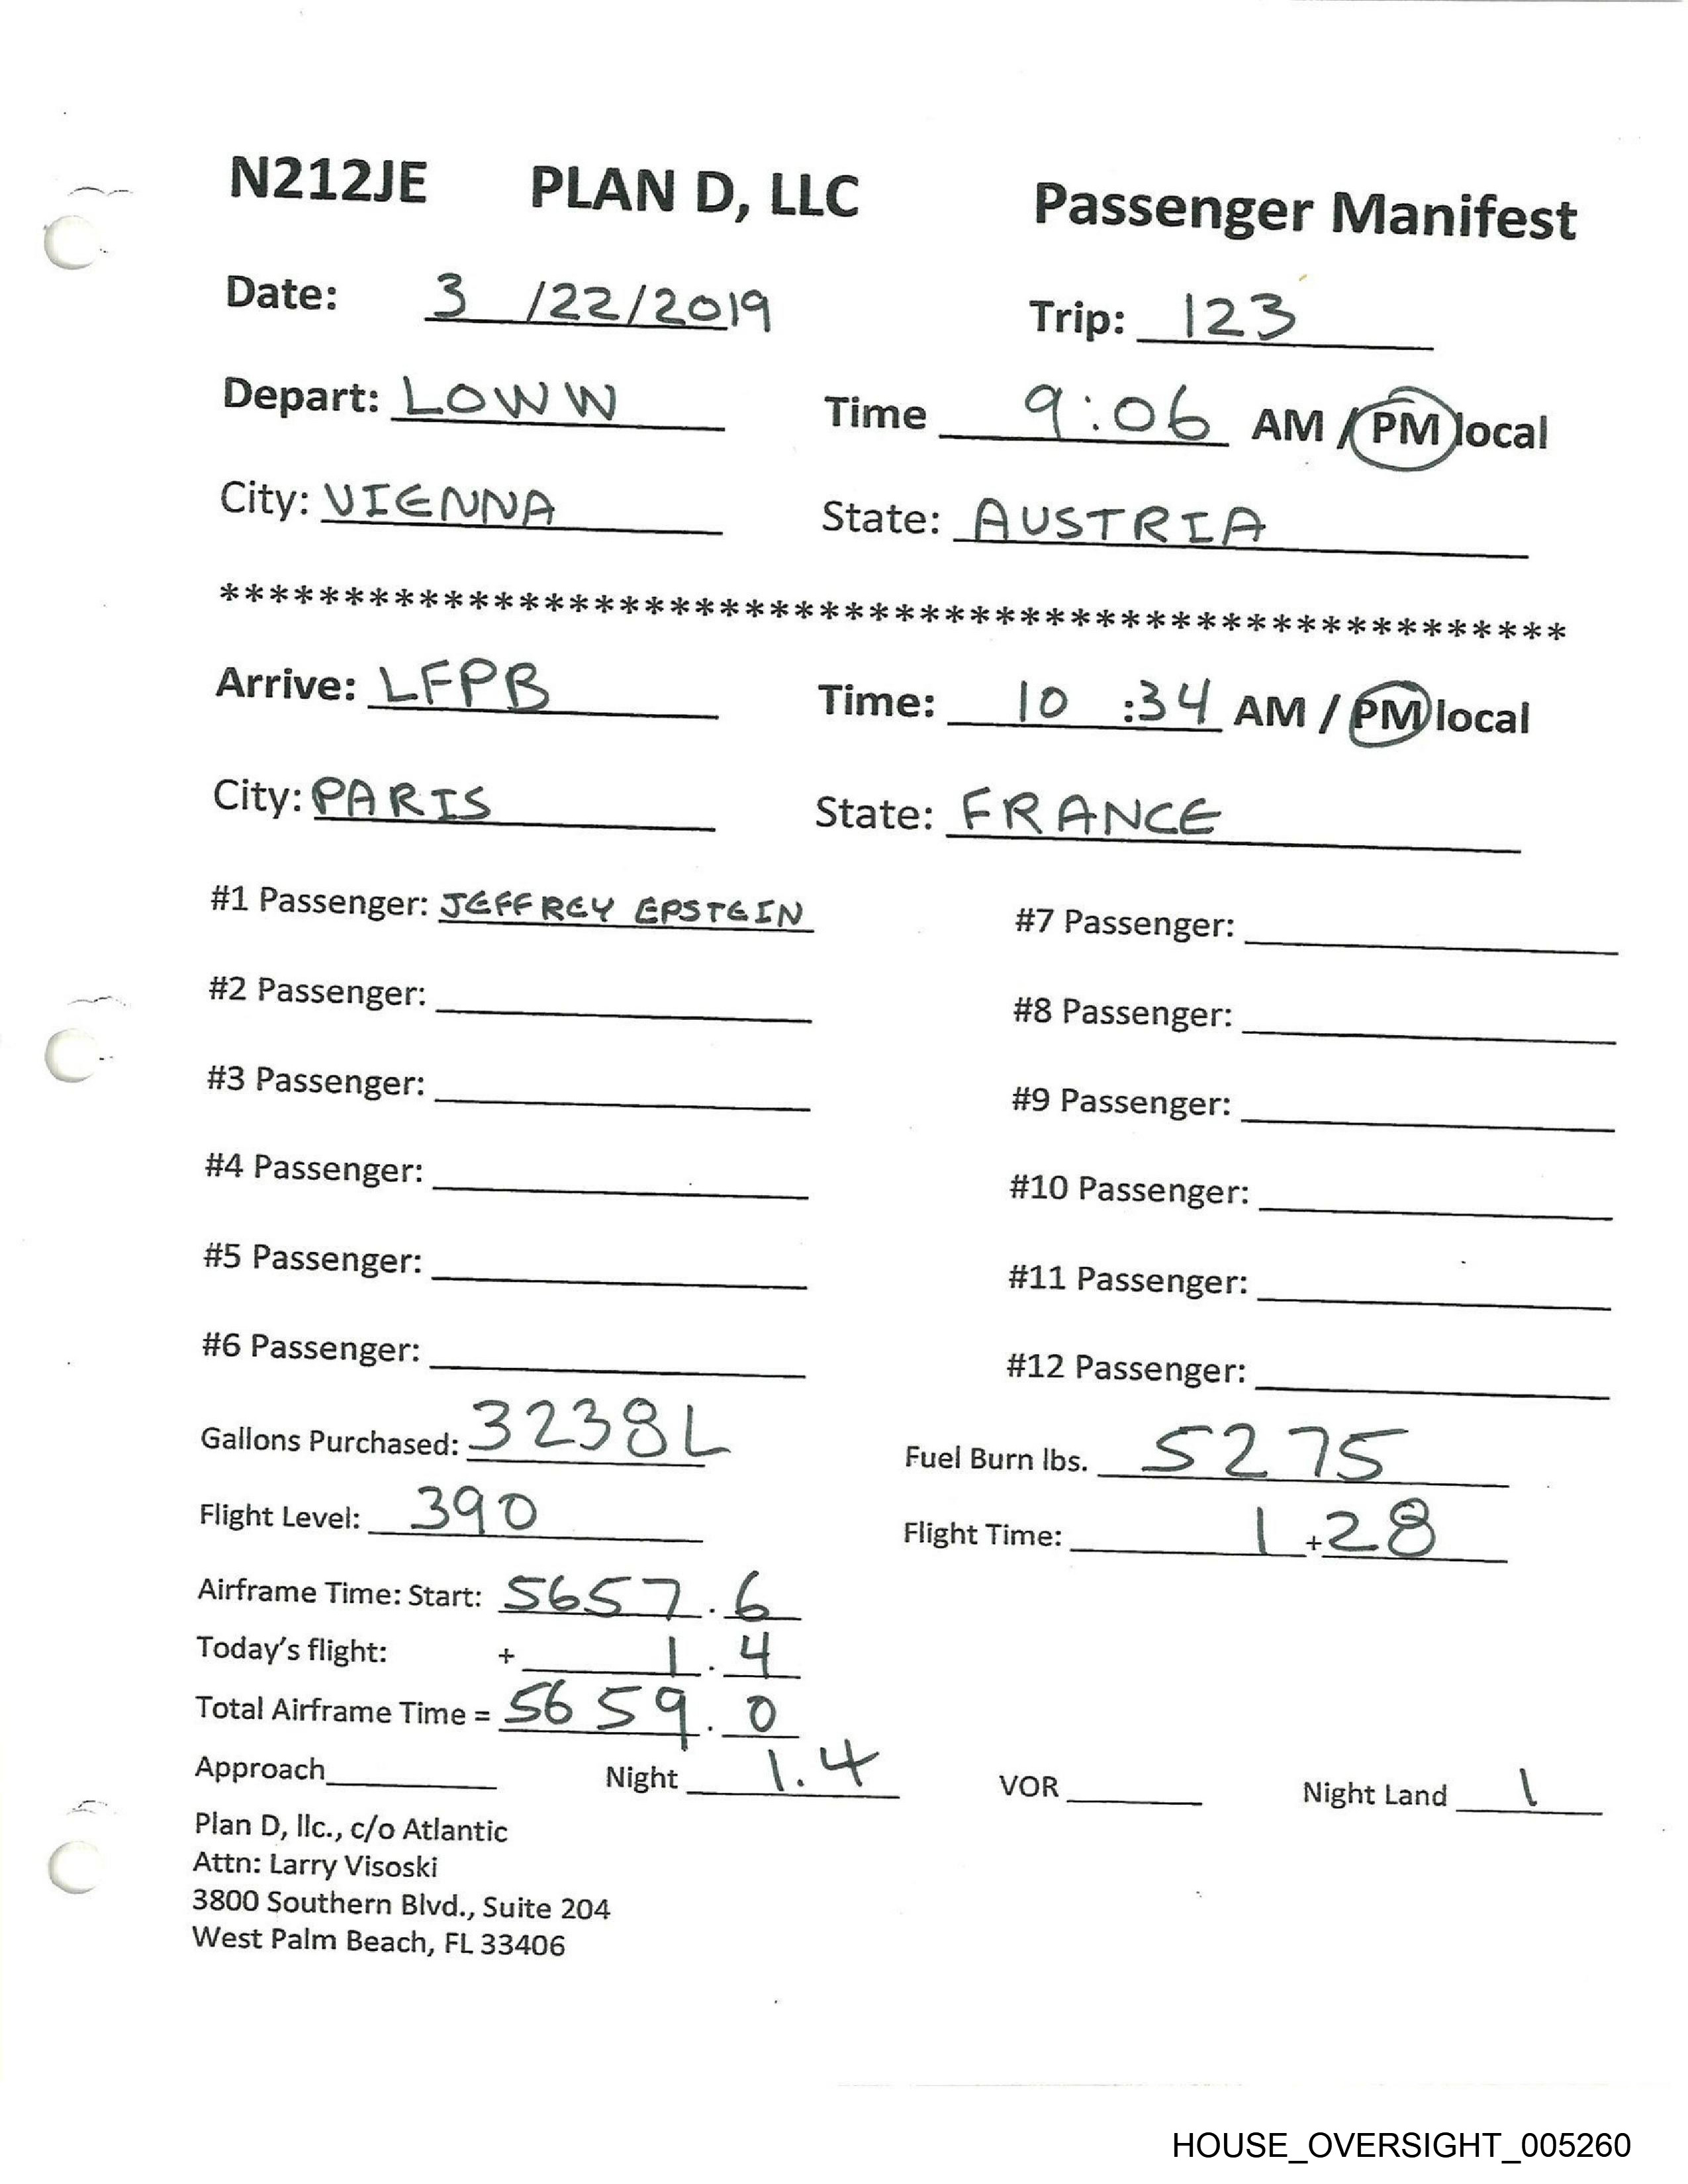 N212JE PLAN D, LLC Passenger Manifest
Date: 3 /22/2019 Trip: 123
Depart: LOWW Time 9:06 AM / PM local
City: VIENNA State: AUSTRIA
******************************************************
Arrive: LFPB Time: 10 :34 AM / PM local
City: PARIS State: FRANCE
#1 Passenger: JEFFREY EPSTEIN #7 Passenger:
#2 Passenger: #8 Passenger:
#3 Passenger: #9 Passenger:
#4 Passenger: #10 Passenger:
#5 Passenger: #11 Passenger:
#6 Passenger: #12 Passenger:
Gallons Purchased: 3238L Fuel Burn lbs. 5275
Flight Level: 390 Flight Time: 1 +28
Airframe Time: Start: 5657.6
Today's flight: + 1.4
Total Airframe Time = 5659.0
Approach Night 1.4 VOR Night Land 1
Plan D, llc., c/o Atlantic
Attn: Larry Visoski
3800 Southern Blvd., Suite 204
West Palm Beach, FL 33406
HOUSE_OVERSIGHT_005260